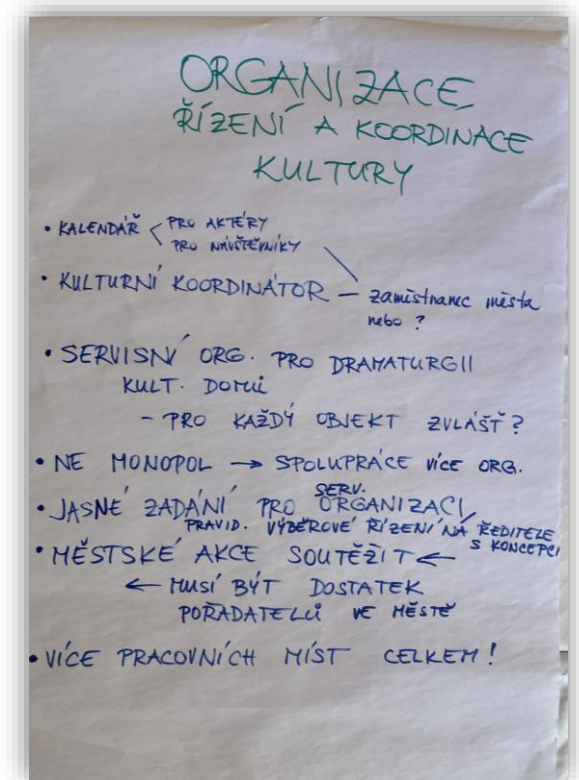 ORGANIZACE
ŘÍZENÍ A KOORDINACE
KULTURY
• KALENDÁŘ < PRO AKTÉRY
PRO NÁVŠTĚVNÍKY
• KULTURNÍ KOORDINÁTOR — zaměstnanec města
nebo ?
• SERVISNÍ ORG. PRO DRAMATURGII
KULT. DOMŮ
- PRO KAŽDÝ OBJEKT ZVLÁŠŤ?
• NE MONOPOL → SPOLUPRÁCE VÍCE ORG.
SERV.
• JASNÉ ZADÁNÍ PRO ORGANIZACI,
PRAVID. VÝBĚROVÉ ŘÍZENÍ NA ŘEDITELE
S KONCEPCÍ
• MĚSTSKÉ AKCE SOUTĚŽIT ←
← MUSÍ BÝT DOSTATEK
POŘADATELŮ VE MĚSTĚ
• VÍCE PRACOVNÍCH MÍST CELKEM!